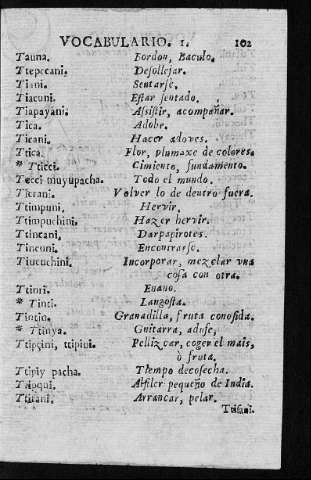 VOCABULARIO. 1. 102
Tauna. Bordon, Baculo.
Ttepecani. Desollejar.
Tiani. Sentarse.
Tiacuni. Estar sentado.
Tiapayàni. Assistir, acompañar.
Tica. Adobe.
Ticani. Hacer adoves.
Ttica. Flor, plumaxe de colores.
* Tticci. Cimiento, fundamento.
Tecci muyupacha. Todo el mundo.
Ticrani. Volver lo de dentro fuera.
Ttimpuni. Hervir.
Ttimpuchini. Hazer hervir.
Tincani. Darpapirotes.
Tincuni. Encontrarse.
Tiucuchini. Incorporar, mezclar vna
cosa con otra.
Ttinri. Enano.
* Tinti. Langosta.
Tintin. Granadilla, fruta conosida.
* Ttinya. Guitarra, adufe,
Ttipçini, ttipini. Pellizcar, coger el mais,
ò fruta.
Ttipiy pacha. Tiempo decosecha.
Ttipqui. Alfiler pequeño de India.
Ttirani. Arrancar, pelar.
Ttisani.